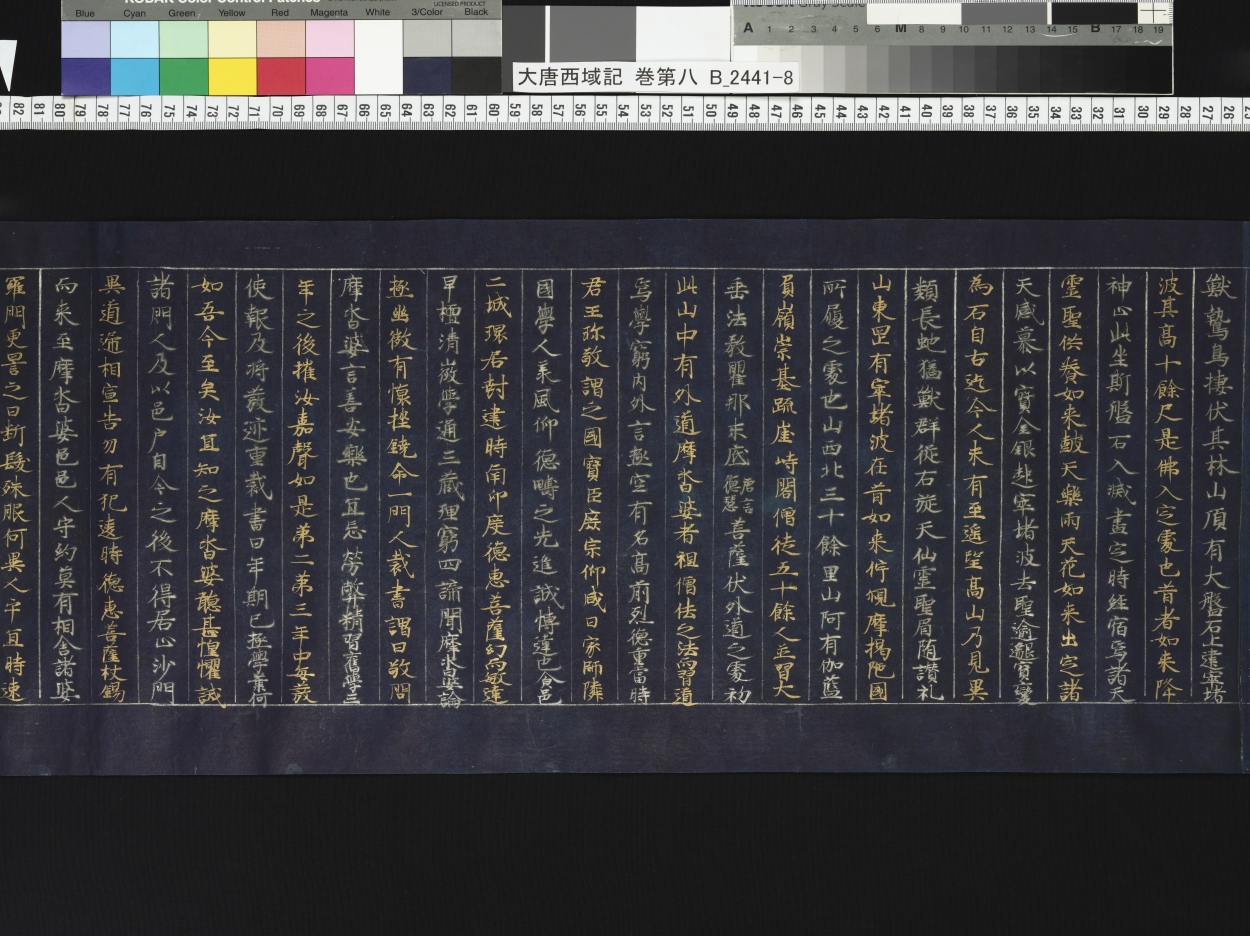 KODAK Color Control Patches
LICENSED PRODUCT
Blue Cyan Green Yellow Red Magenta White 3/Color Black
A 1 2 3 4 5 6 M 8 9 10 11 12 13 14 15 B 17 18 19
大唐西域記 巻第八 B_2441-8
82 81 80 79 78 77 76 75 74 73 72 71 70 69 68 67 66 65 64 63 62 61 60 59 58 57 56 55 54 53 52 51 50 49 48 47 46 45 44 43 42 41 40 39 38 37 36 35 34 33 32 31 30 29 28 27 26
獸鷙鳥棲伏其林山頂有大盤石上建窣堵
波其高十餘尺是佛入定處也昔者如來降
神止此坐斯盤石入滅盡定時經宿焉諸天
靈聖供養如來鼓天樂雨天花如來出定諸
天感慕以寶金銀起窣堵波去聖逾邈寶變
為石自古迄今人未有至遙望高山乃見異
類長蛇猛獸群從右旋天仙靈聖肩随讃礼
山東罡有窣堵波在昔如來佇觀摩揭陁國
所履之處也山西北三十餘里山阿有伽藍
負嶺崇基疏崖峙閣僧徒五十餘人並習大
乗法教瞿那末底唐言德慧菩薩伏外道之處初
此山中有外道摩沓婆者祖僧佉之法而習道
焉學窮內外言極空有名高前烈德重當時
君王珎敬謂之國寶臣庶宗仰咸曰家師隣
國學人承風仰德疇之先進誠博達也食邑
二城環居封建時南印度德惠菩薩幻而敏達
早擅清徽學通三藏理窮四諦聞摩沓婆論
極幽微有懷挫銳命一門人裁書謂曰敬問
摩沓婆言善安樂也宜忘勞弊精習舊學三
年之後摧汝嘉聲如是第二第三年中每發
使報及將發迹重裁書曰年期已極學業何
如吾今至矣汝宜知之摩沓婆聽甚惶懼誡
諸門人及以邑户自今之後不得居止沙門
異道遞相宣告勿有犯違時德惠菩薩杖錫
而來至摩沓婆邑邑人守約莫有相舍諸婆
羅門更詈之曰斷髮殊服何異人乎宜時速